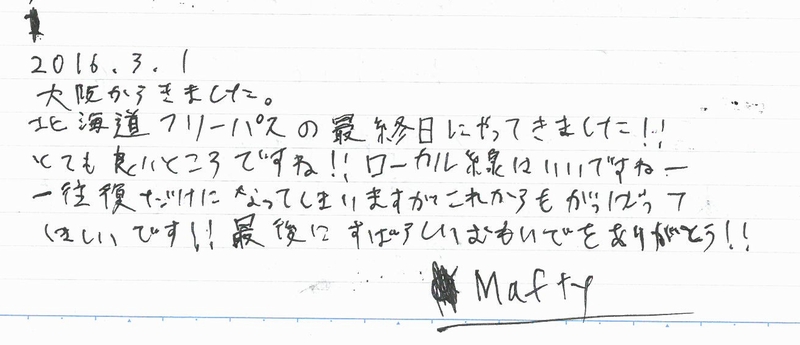 2016.3.1
大阪からきました。
北海道フリーパスの最終日にやってきました!!
とても良いところですね!! ローカル線はいいですねー
一往復だけになってしまいますがこれからもがんばって
ほしいです!! 最後にすばらしいおもいでをありがとう!!
Mafty